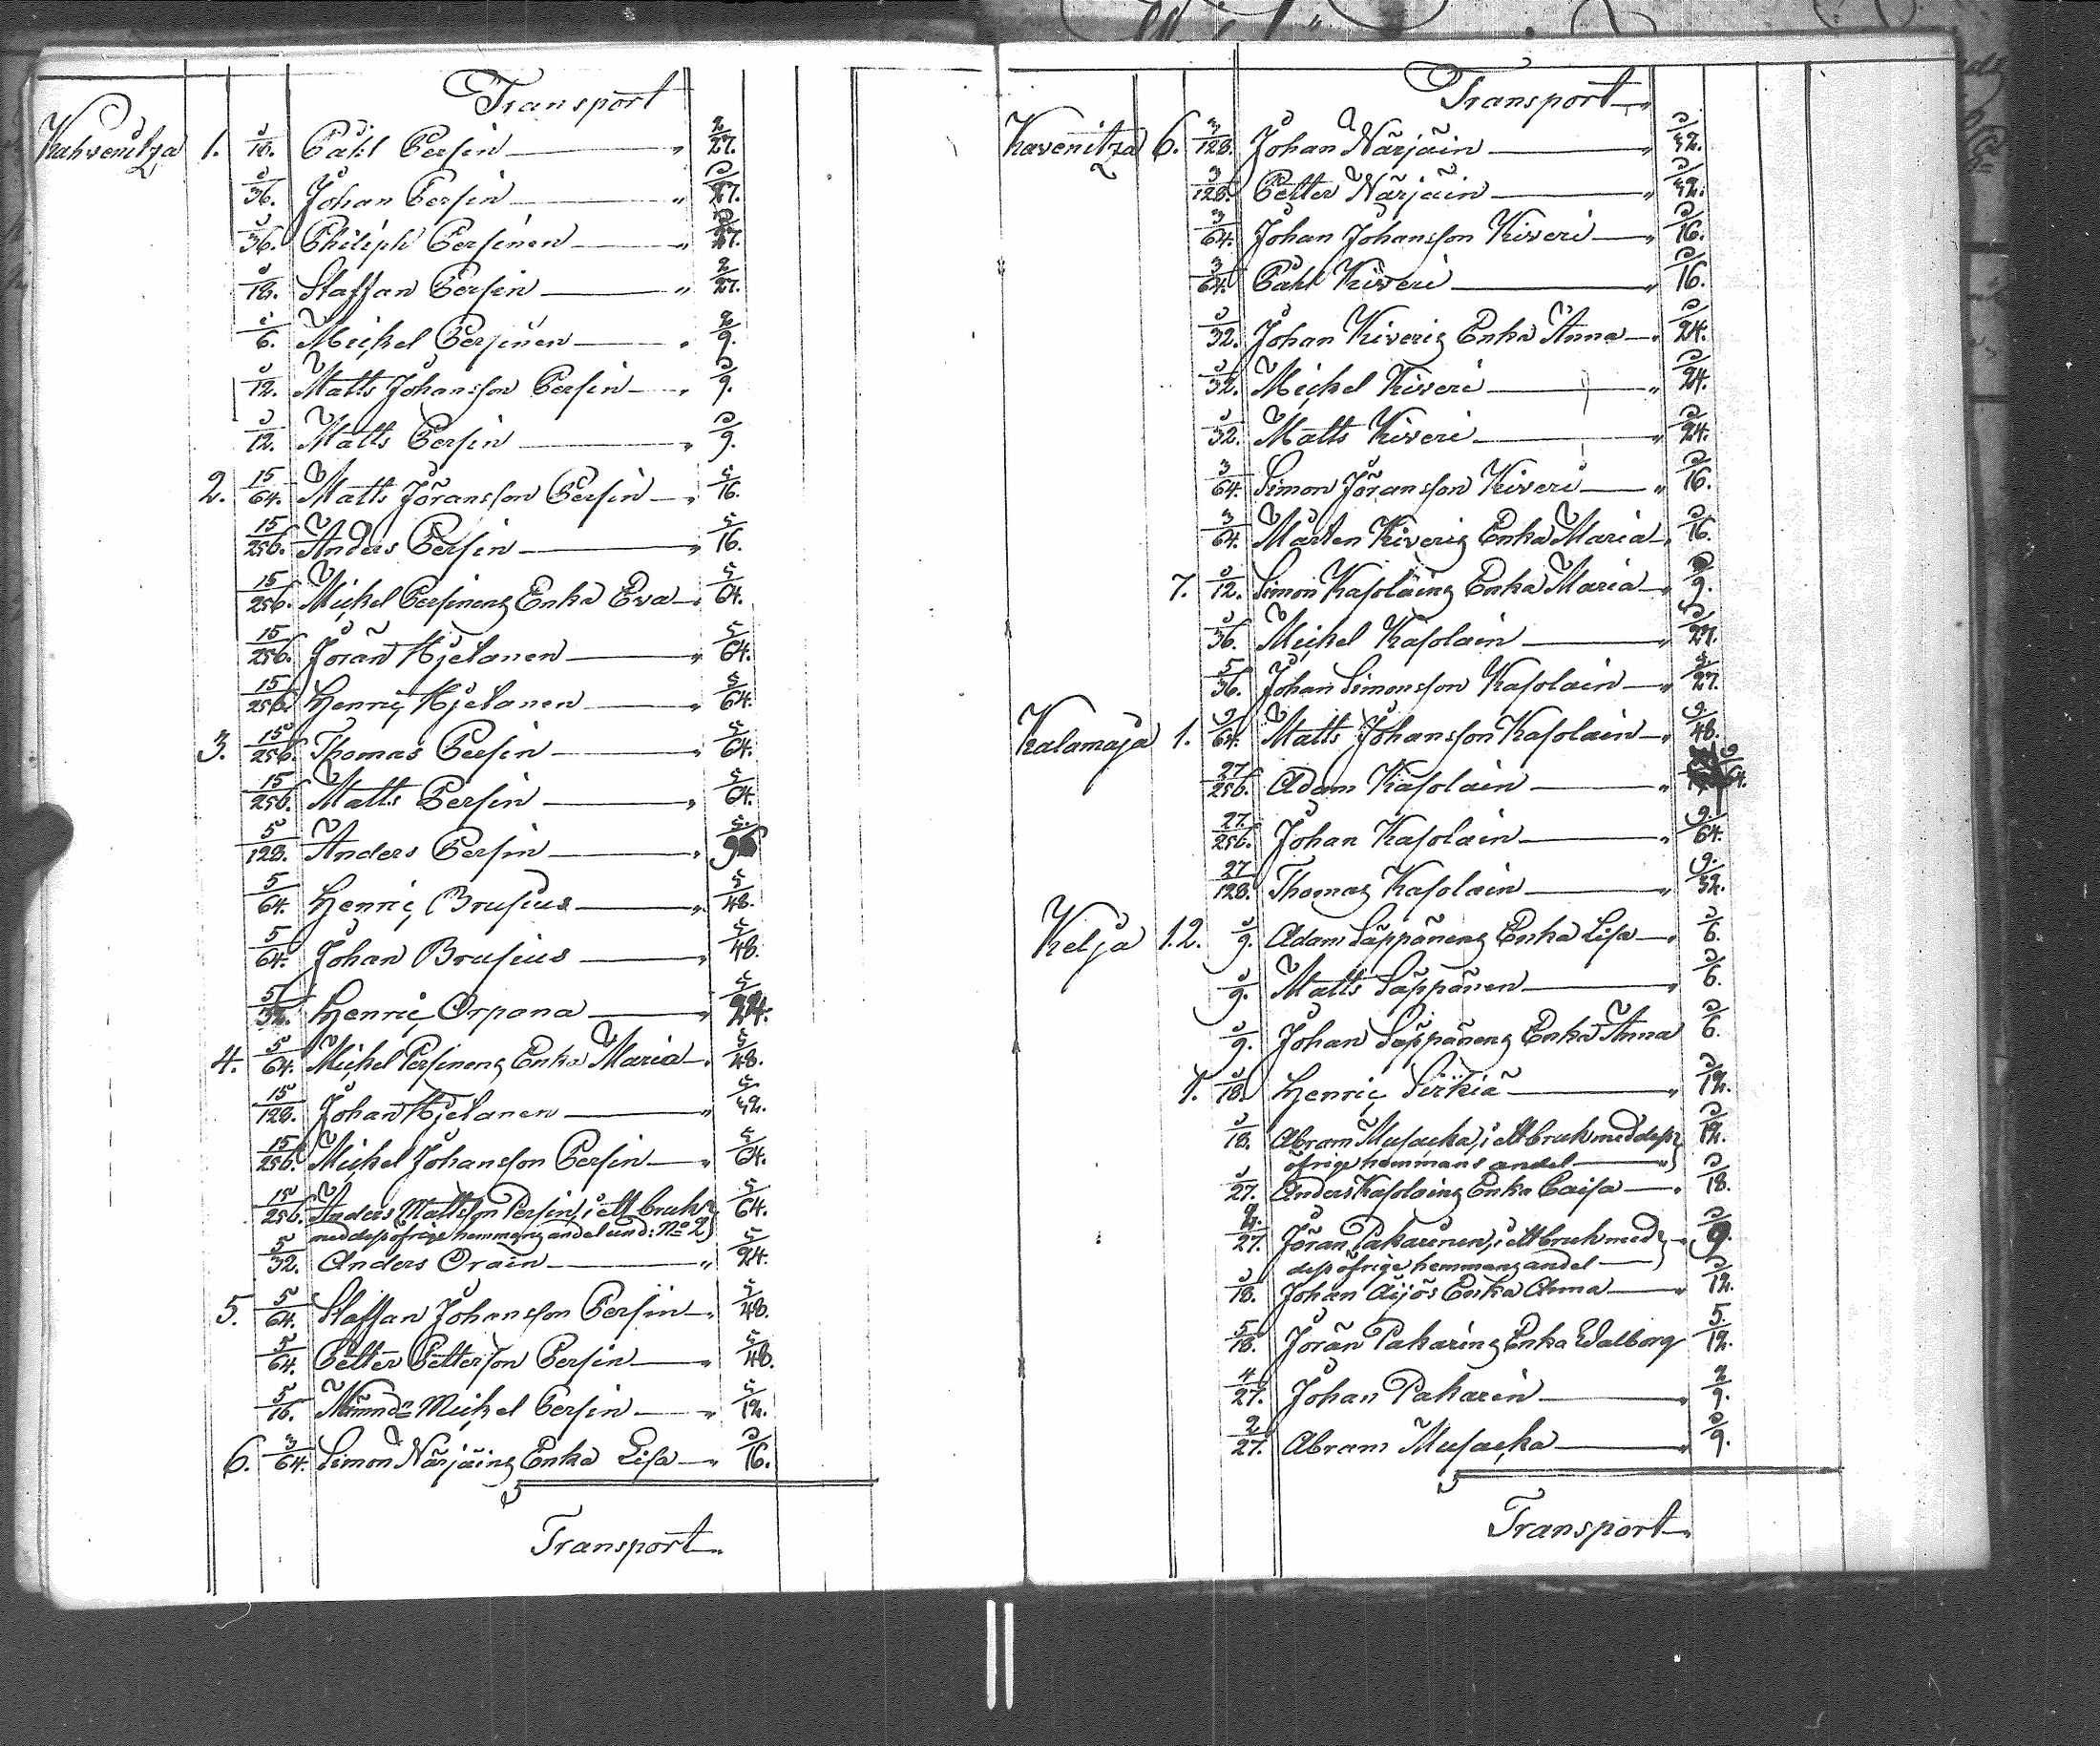 Transport
Kahvenitza 1. 1/18. Påhl Persin — " 2/27.
1/36. Johan Persin — " 1/27.
1/36. Philiph Persinen — " 1/27.
1/18. Staffan Persin — " 2/27.
1/6. Michel Persinen — " 2/9.
1/12. Matts Johansson Persin — " 1/9.
1/12. Matts Persin — " 1/9.
2. 15/64. Matts Jöransson Persin — " 5/16.
15/256. Anders Persin — " 5/16.
15/256. Michel Persinens Enka Eva — " 5/64.
15/256. Jöran Hjelanen — " 5/64.
15/256. Henric Hjelanen — " 5/64.
3. 15/256. Thomas Persin — " 5/64.
15/256. Matts Persin — " 5/64.
5/128. Anders Persin — " 5/96
5/64. Henric Brusius — " 5/48.
5/64. Johan Brusius — " 5/48.
5/32. Henric Orpana — " 5/24.
4. 5/64. Michel Persinens Enka Maria — " 5/48.
15/128. Johan Hjelanen — " 5/32.
15/256. Michel Johansson Persin — " 5/64.
15/256. Anders Mattsson Persin, i ett bruk 5/64.
med dess öfrige hemmans andel und: No 2
5/32. Anders Orain — " 5/24.
5. 5/64. Staffan Johansson Persin — " 5/48.
5/64. Petter Pettersson Persin — " 5/48.
5/16. Nämnd: Michel Persin — " 5/12.
6. 3/64. Simon Närjäins Enka Lisa — " 1/16.
Transport
Transport
Kavenitza 6. 3/128. Johan Närjäin — " 1/32.
3/128. Petter Närjäin — " 1/32.
3/64. Johan Johansson Kiveri — " 1/16.
3/64. Påhl Kiveri — " 1/16.
1/32. Johan Kiveris Enka Anna — " 1/24.
1/32. Michel Kiveri — " 1/24.
1/32. Matts Kiveri — " 1/24.
3/64. Simon Jöransson Kiveri — " 1/16.
3/64. Mårten Kiveris Enka Maria " 1/16.
7. 1/12. Simon Kasolains Enka Maria — " 1/9.
1/36. Michel Kasolain — " 1/27.
5/36. Johan Simonsson Kasolain — " 5/27.
Kalamaja 1. 9/64. Matts Johansson Kasolain — " 9/48.
27/256. Adam Kasolain — " 9/64.
27/256. Johan Kasolain — " 9/64.
27/128. Thomas Kasolain — " 9/32.
Kelja 1.2. 1/9. Adam Säppänens Enka Lisa — " 1/6.
1/9. Matts Säppänen — " 1/6.
1/9. Johan Säppänens Enka Anna 1/6.
1/18. Henric Sirkiä — " 1/12.
1/18. Abram Musacka, i ett bruk med dess 1/12.
öfrige hemmans andel — "
1/27. Anders Kasolains Enka Caisa — " 1/18.
/27. Jöran Pakarinen, i ett bruk med — " /9.
dess öfrige hemmans andel —
1/18. Johan Äijös Enka Anna — " 1/12.
5/18. Jöran Pakarins Enka Walborg 5/12.
4/27. Johan Pakarin — " 2/9.
2/27. Abram Musacka — " 1/9.
Transport